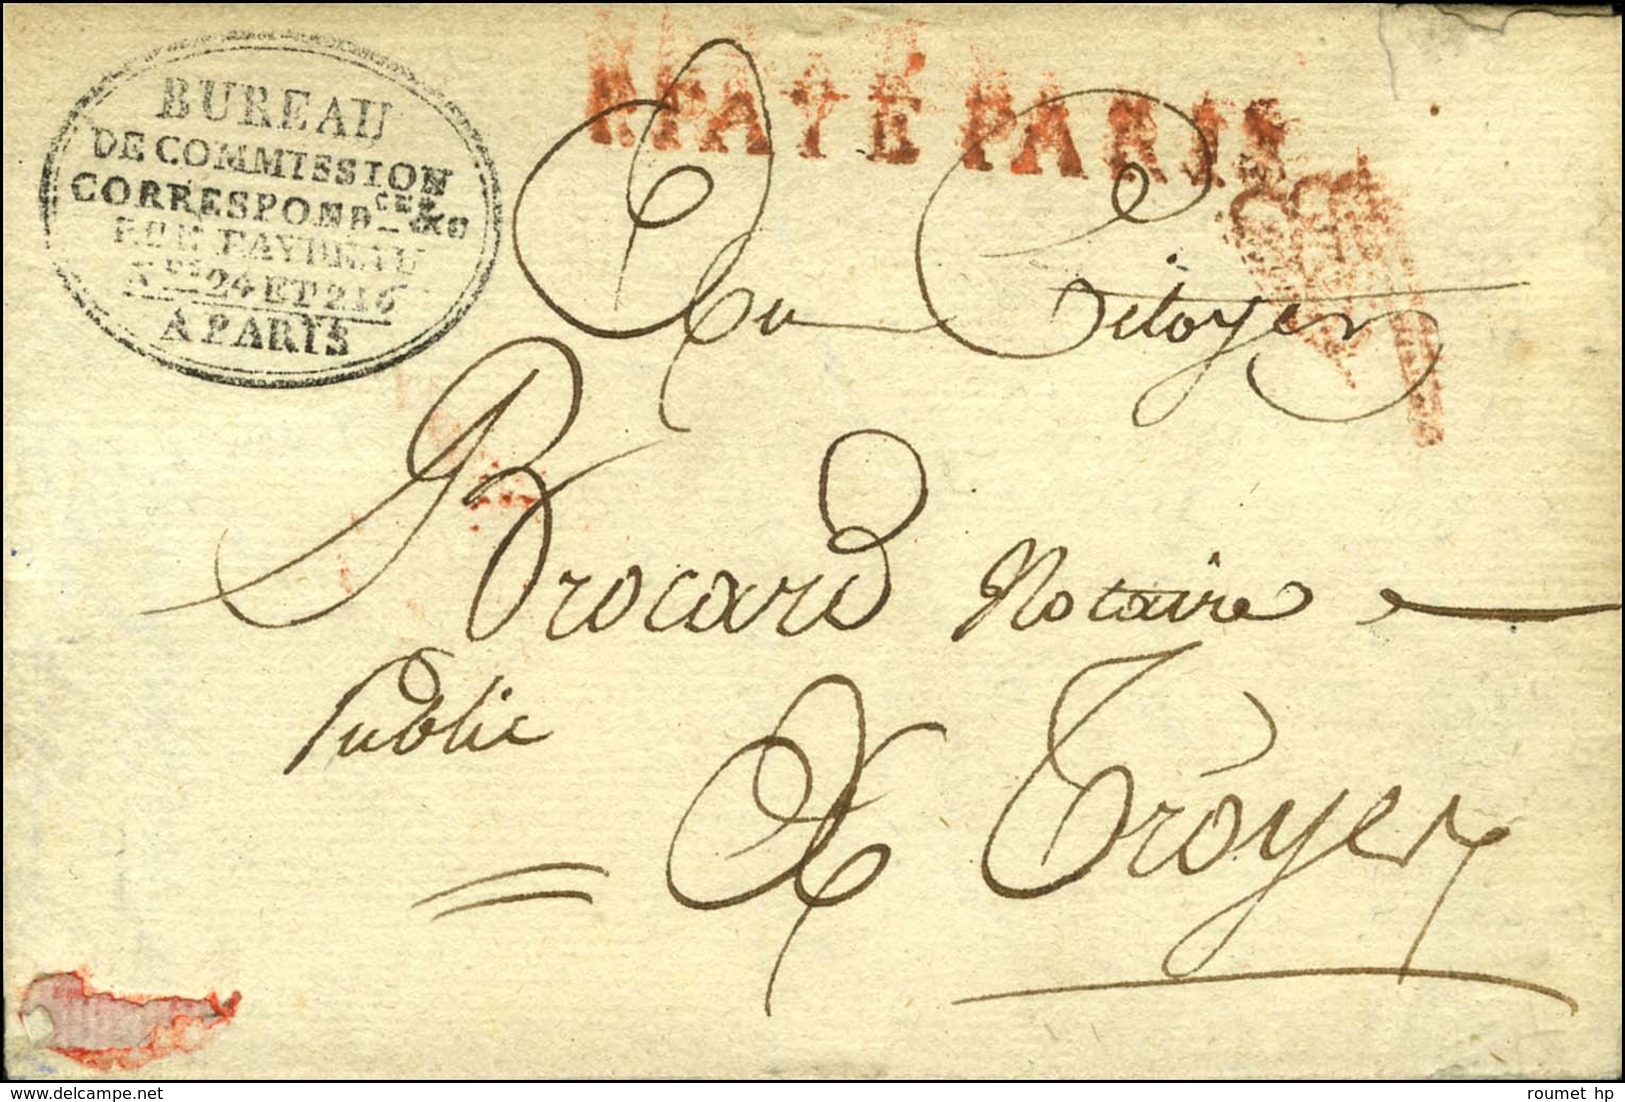 BUREAU
DE COMMISSION
CORRESPOND.ces &c
RUE FAYDEAU
N.os 24 ET 216
A PARIS
PAYÉ PARIS
Au Citoyen
Brocard Notaire
Public
A Troyes
roumet hp
delcampe.net